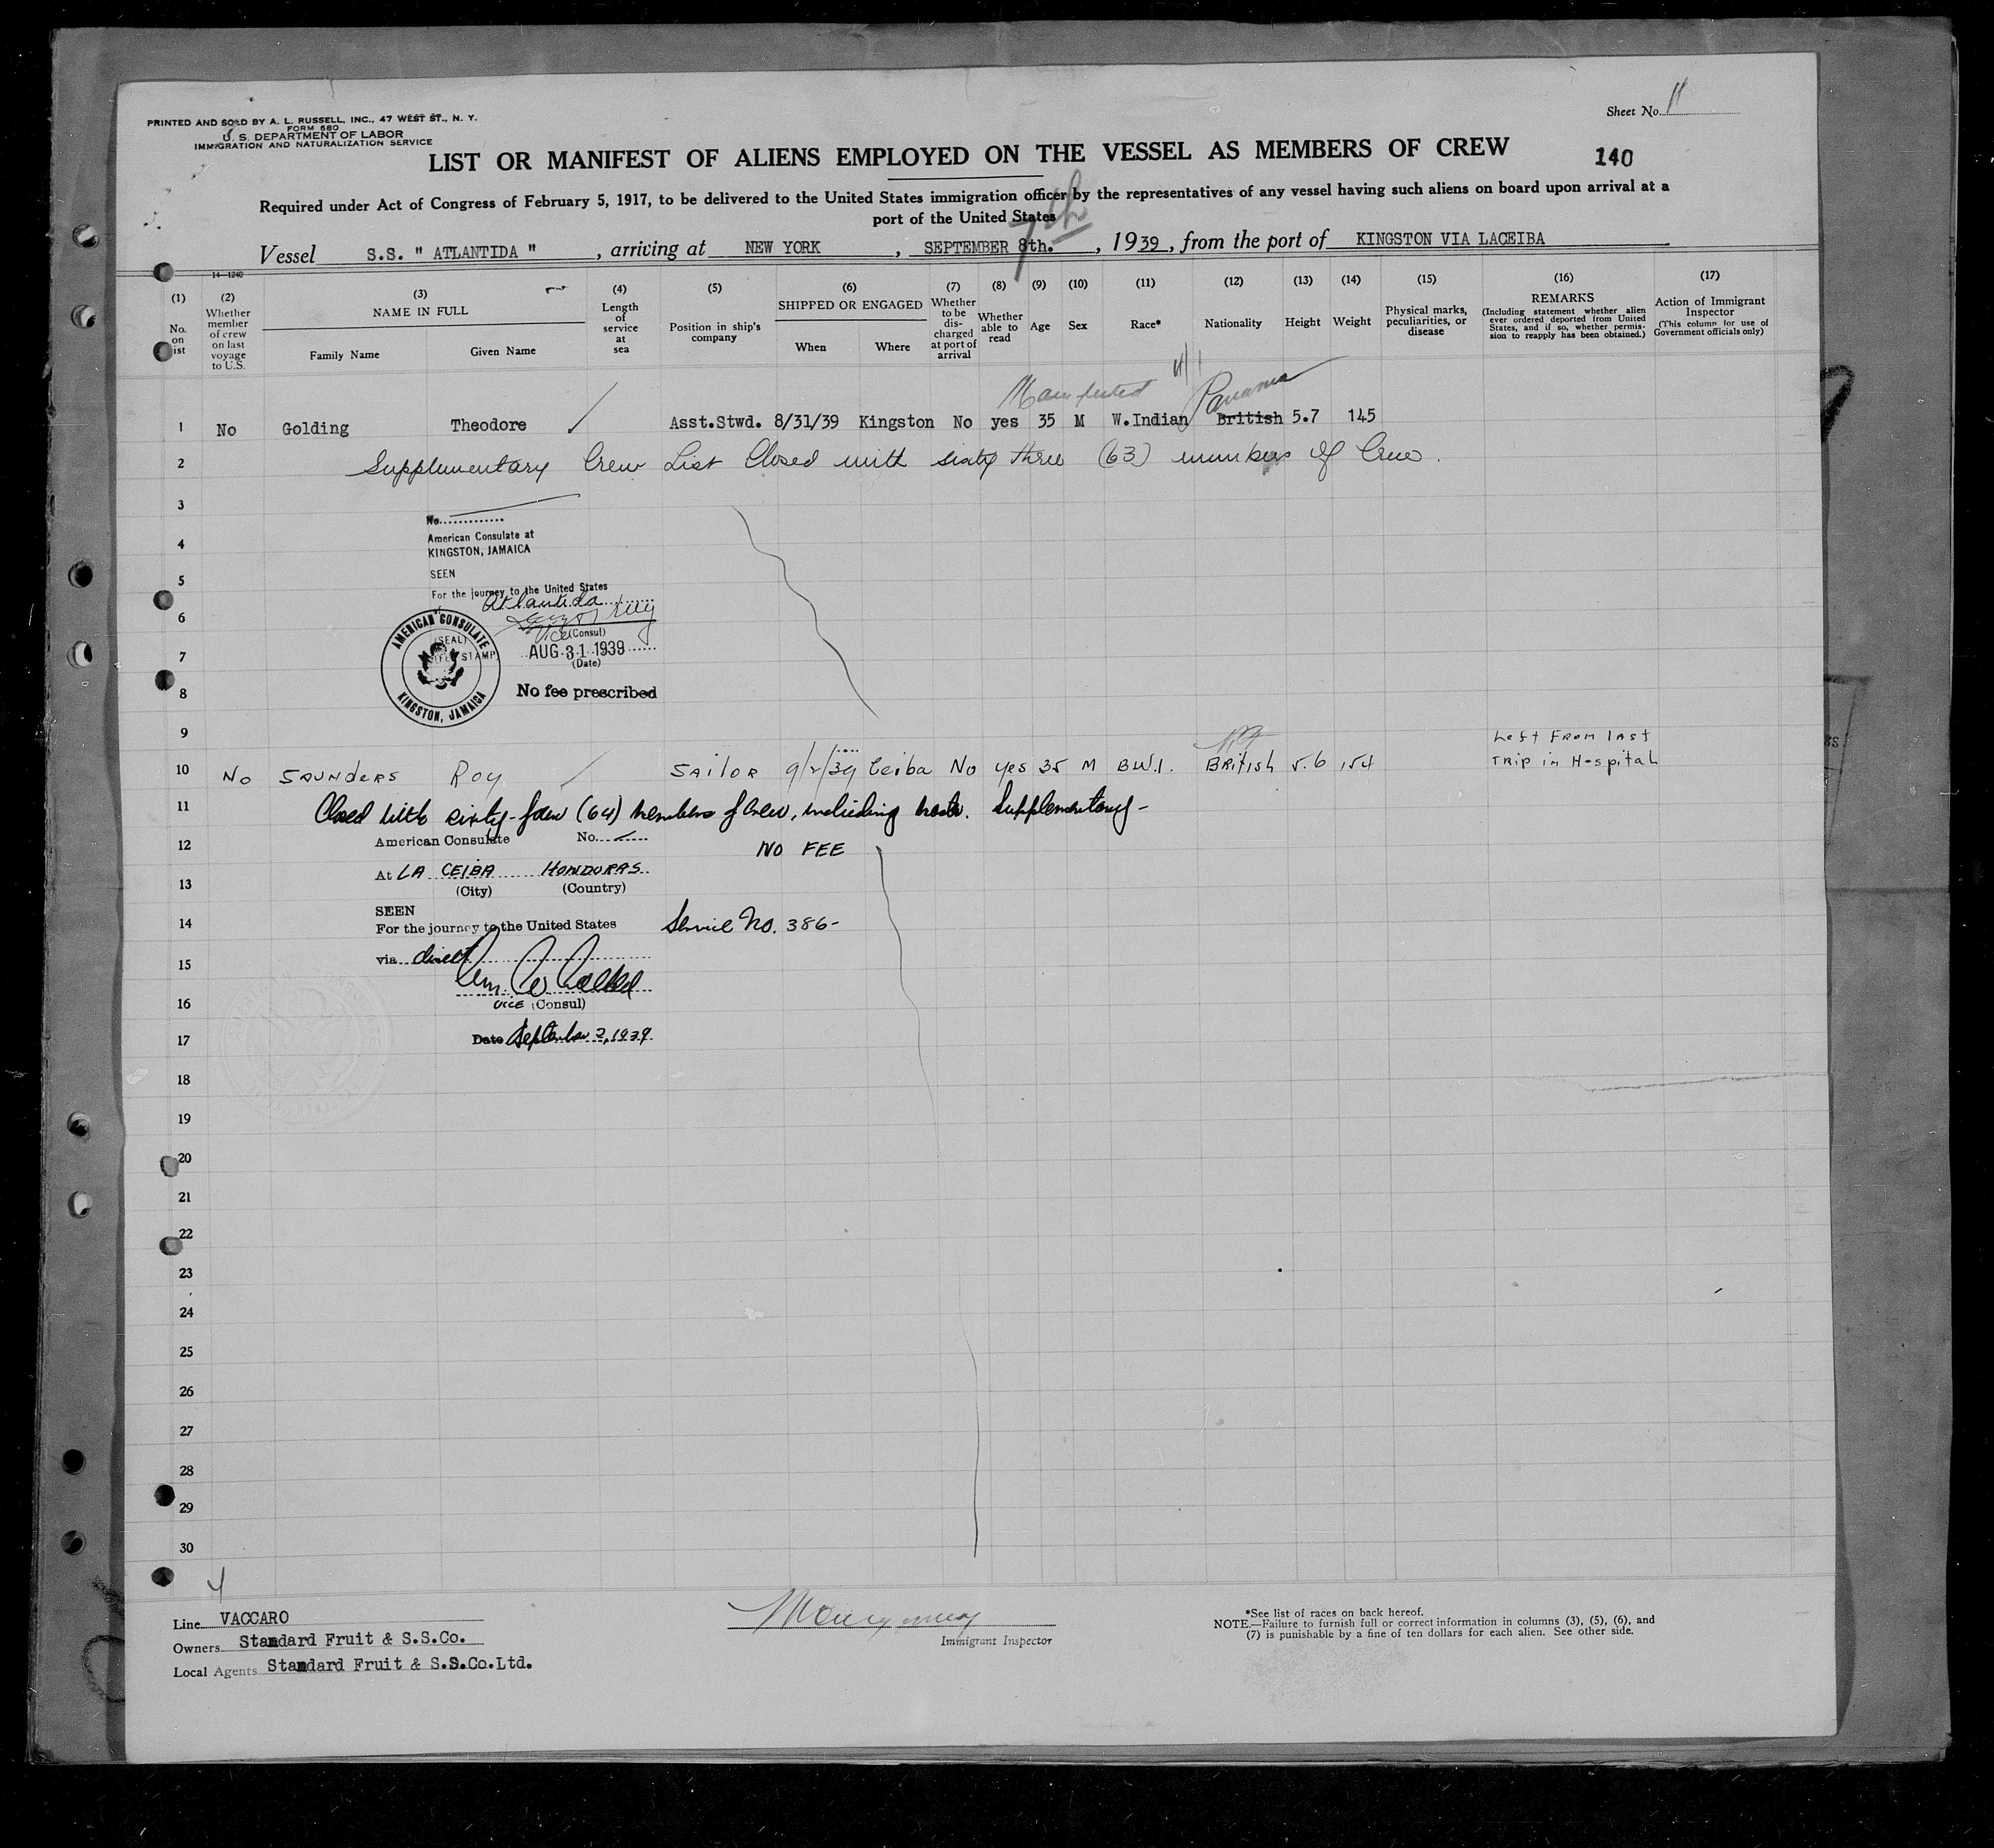 Sheet No. 11
PRINTED AND SOLD BY A. L. RUSSELL, INC., 47 WEST ST., N. Y.
FORM 680
U. S. DEPARTMENT OF LABOR
IMMIGRATION AND NATURALIZATION SERVICE
LIST OR MANIFEST OF ALIENS EMPLOYED ON THE VESSEL AS MEMBERS OF CREW
140
Required under Act of Congress of February 5, 1917, to be delivered to the United States immigration officer by the representatives of any vessel having such aliens on board upon arrival at a
port of the United States
7th
Vessel S.S. " ATLANTIDA " , arriving at NEW YORK , SEPTEMBER 8th. , 1939 , from the port of KINGSTON VIA LACEIBA
14—1240
(1) No. on list
(2) Whether member of crew on last voyage to U.S.
(3) NAME IN FULL
Family Name Given Name
(4) Length of service at sea
(5) Position in ship's company
(6) SHIPPED OR ENGAGED
When Where
(7) Whether to be discharged at port of arrival
(8) Whether able to read
(9) Age
(10) Sex
(11) Race*
(12) Nationality
(13) Height
(14) Weight
(15) Physical marks, peculiarities, or disease
(16) REMARKS
(Including statement whether alien ever ordered deported from United States, and if so, whether permission to reapply has been obtained.)
(17) Action of Immigrant Inspector
(This column for use of Government officials only)
Manifested Panama
1 No Golding Theodore Asst.Stwd. 8/31/39 Kingston No yes 35 M W.Indian British 5.7 145
2 Supplementary Crew List Closed with sixty three (63) members of Crew.
3
No.............
4 American Consulate at
KINGSTON, JAMAICA
5 SEEN
For the journey to the United States
6 Atlantida
Vice (Consul)
AMERICAN CONSULATE
(SEAL)
STAMP
KINGSTON, JAMAICA
7 AUG 31 1939
(Date)
8 No fee prescribed
9 Left From last
10 No SAUNDERS Roy SAILOR 9/2/39 Ceiba No yes 35 M B.W.I. BRITISH 5.6 154 TRIP in Hospital
11 Closed with sixty-four (64) members of crew, including master. Supplementary-
American Consulate No.
12 NO FEE
13 At LA CEIBA HONDURAS
(City) (Country)
SEEN
14 For the journey to the United States Service No. 386-
15 via direct
16 VICE (Consul)
17 Date September 2, 1939
18
19
20
21
22
23
24
25
26
27
28
29
30
4
Line VACCARO
Owners Standard Fruit & S.S.Co.
Local Agents Standard Fruit & S.S.Co.Ltd.
Immigrant Inspector
*See list of races on back hereof.
NOTE.—Failure to furnish full or correct information in columns (3), (5), (6), and
(7) is punishable by a fine of ten dollars for each alien. See other side.